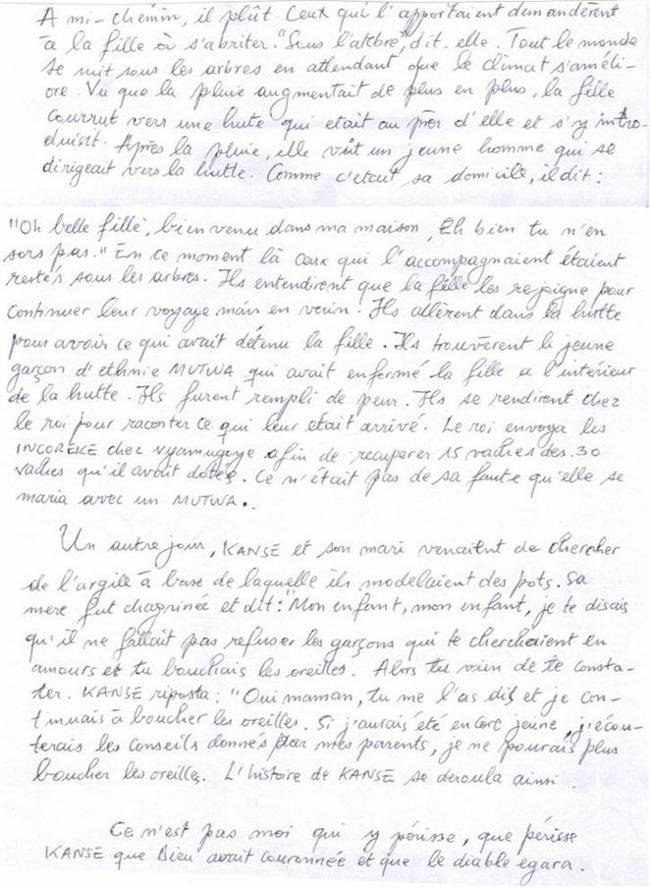 A mi-chemin, il plût. Ceux qui l'apportaient demandèrent
à la fille où s'abriter. "Sous l'arbre", dit-elle. Tout le monde
se mit sous les arbres en attendant que le climat s'améli-
ore. Vu que la pluie augmentait de plus en plus, la fille
courrut vers une hute qui etait au près d'elle et s'y intro-
duisit. Après la pluie, elle voit un jeune homme qui se
dirigeait vers la hutte. Comme c'etait sa domicile, il dit :
"Oh belle fille, bien venu dans ma maison, Eh bien tu n'en
sors pas." En ce moment là ceux qui l'accompagnaient étaient
restés sous les arbres. Ils entendirent que la fille les rejoigne pour
continuer leur voyage main en verin. Ils allèrent dans la hutte
pour avoir ce qui avait détenu la fille. Ils trouvèrent le jeune
garçon d'ethnie MUTWA qui avait enfermé la fille a l'intérieur
de la hutte. Ils furent rempli de peur. Ils se rendirent chez
le roi pour raconter ce qui leur était arrivé. Le roi envoya les
INCOREKE chez Nyamugoye afin de recuperer 15 vaches des 30
vaches qu'il avait dotée. Ce n'était pas de sa faute qu'elle se
maria avec un MUTWA..
Un autre jour, KANSE et son mari venaient de chercher
de l'argile à base de laquelle ils modelaient des pots. Sa
mere fut chagrinée et dit : "Mon enfant, mon enfant, je te disais
qu'il ne fallait pas refuser les garçons qui te cherchaient en
amours et tu bouchais les oreilles. Alors tu vien de te consta-
ter. KANSE riposta : "Oui maman, tu me l'as dis et je con-
tinuais à boucher les oreilles. Si j'aurais été encore jeune, j'écou-
terais les conseils donnés par mes parents, je ne pourais plus
boucher les oreilles. L'histoire de KANSE se deroula ainsi.
Ce n'est pas moi qui y périsse, que périsse
KANSE que Dieu avait couronnée et que le diable egara.